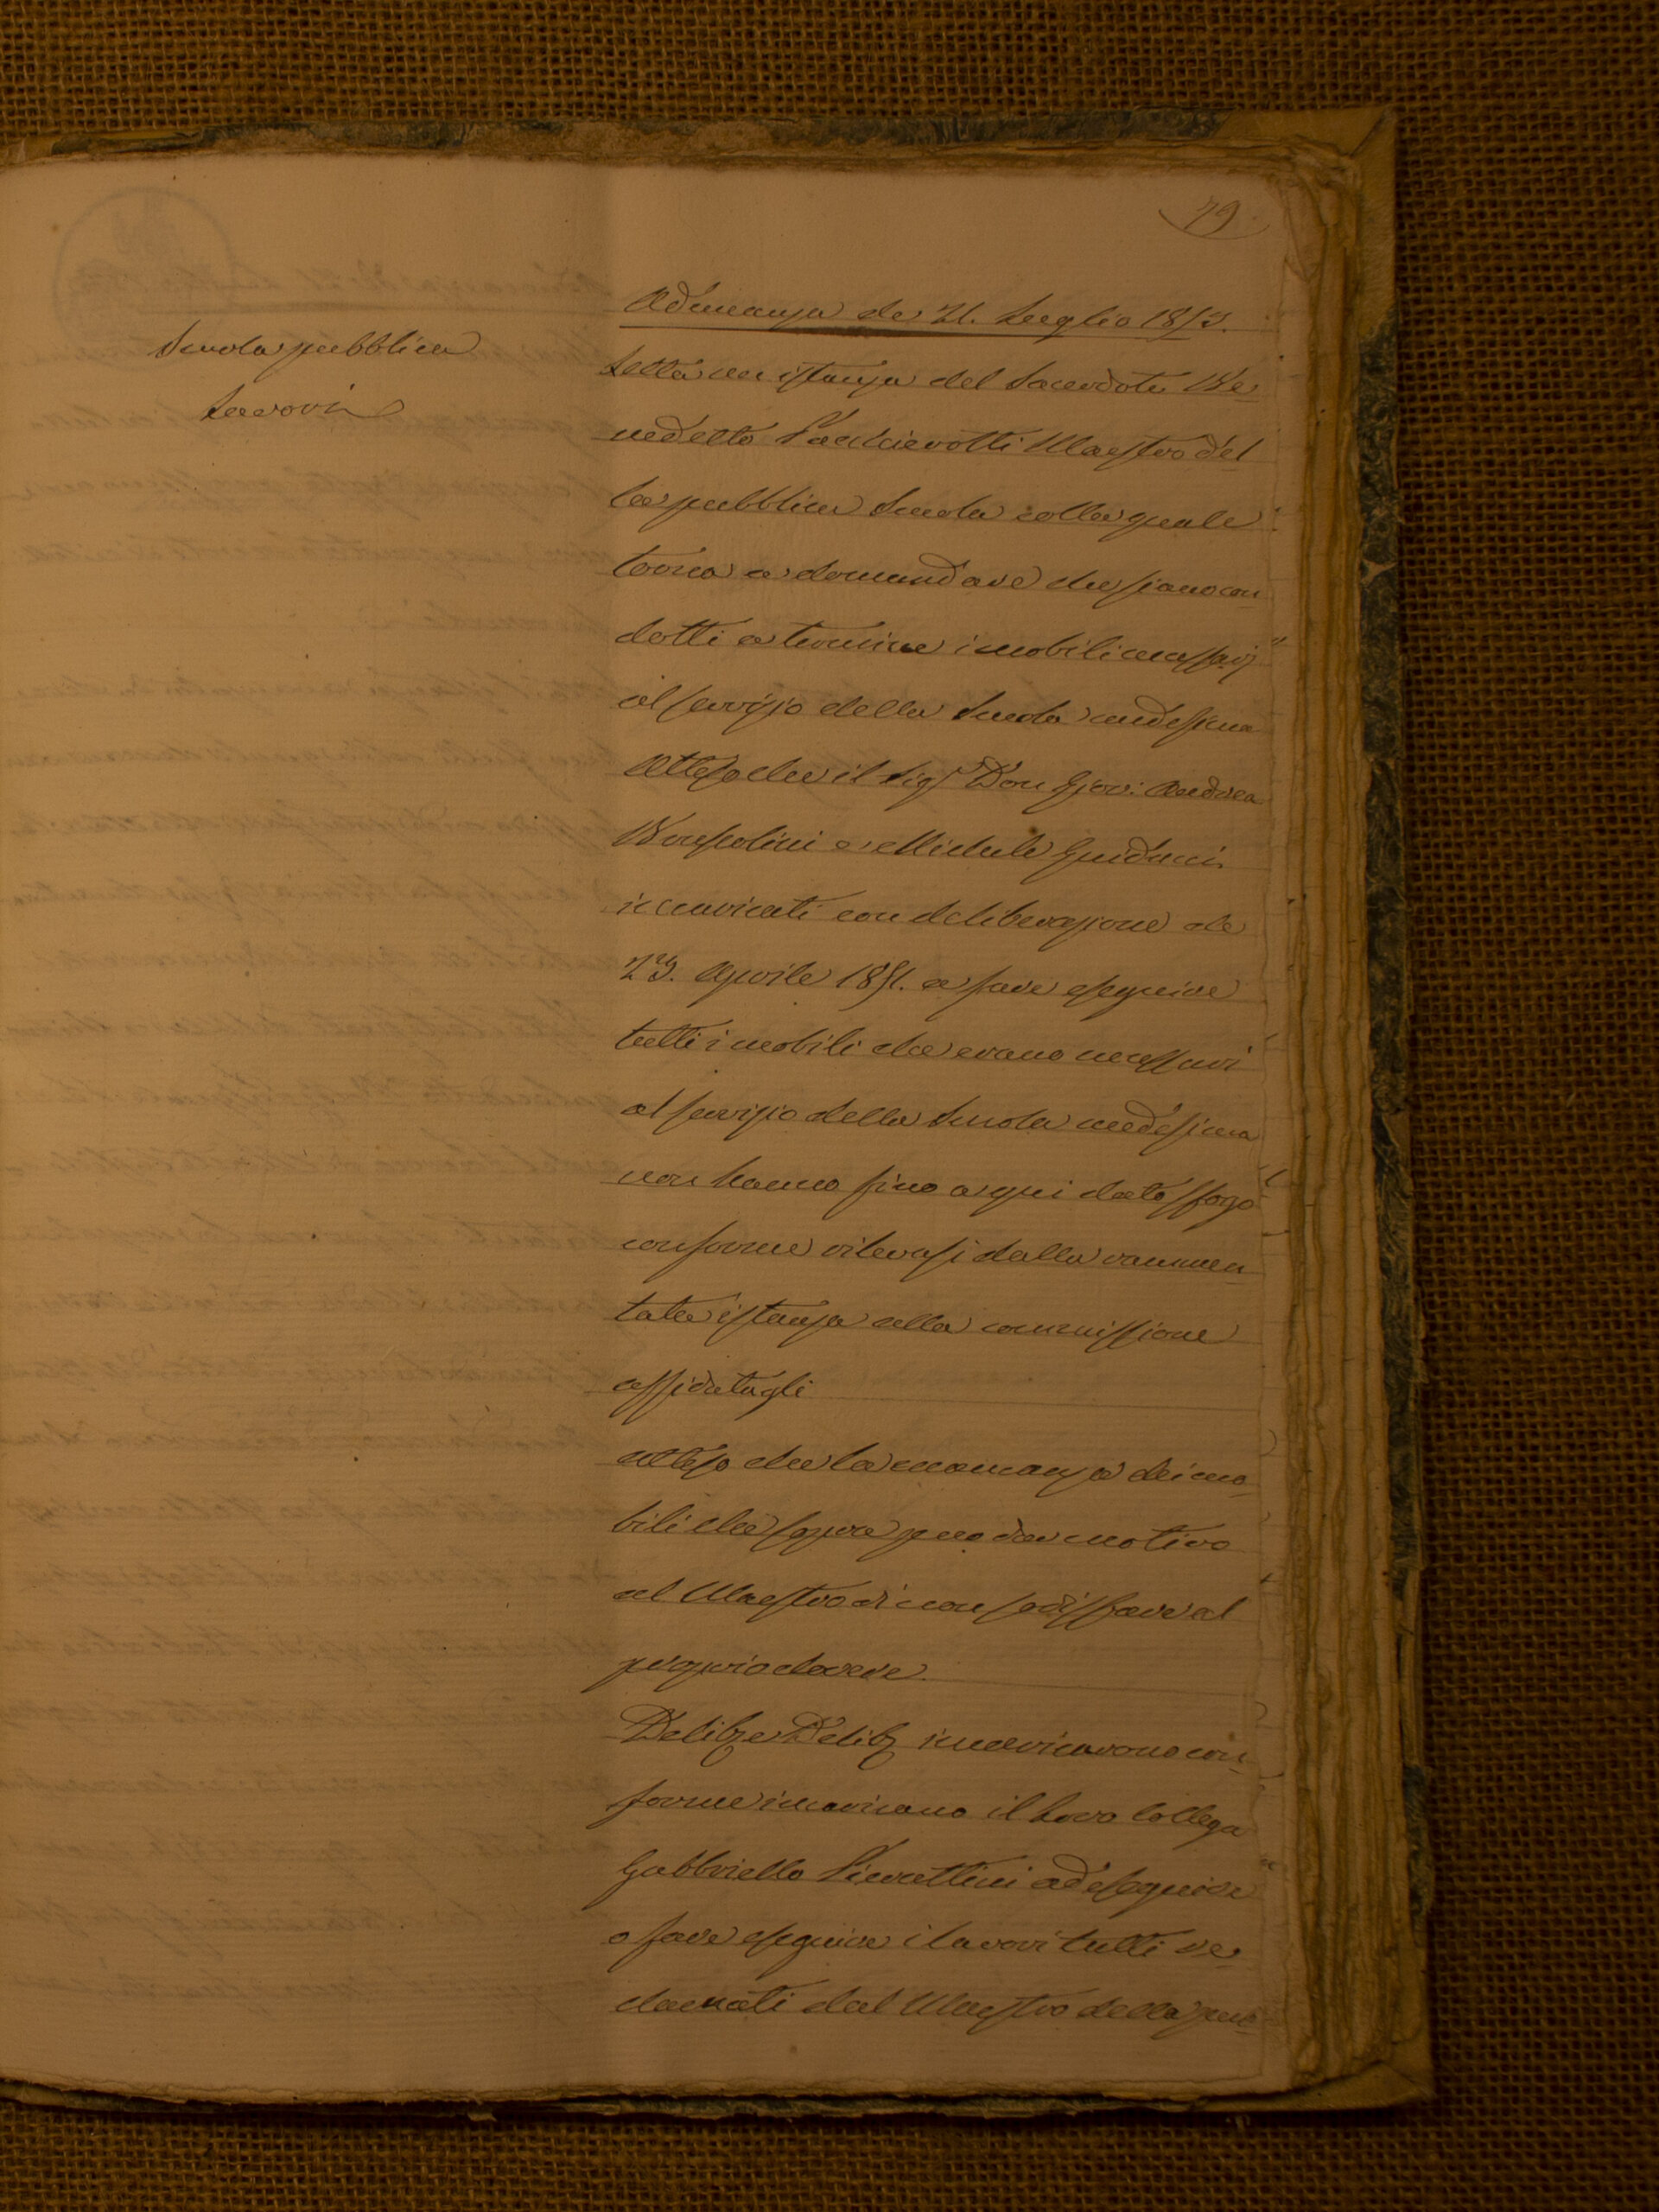 79
Adunanza de 21. Luglio 1853.
Scuola pubblica
Lavori
Letta un istanza del Sacerdote Be
nedetto Panchierotti Maestro del
la pubblica Scuola colla quale
torna a domandare che siano con
dotti a termine i mobili necessarj
al servizio della Scuola medesima
Atteso che il Sigr Don Giov: Andrea
Bonsolini e Michele Guiducci
incaricati con deliberazione de
23. Aprile 1851. a fare eseguire
tutti i mobili che erano necessari
al servizio della Scuola medesima
non hanno fino a qui dato sfogo
conforme rilevasi dalla rammen
tata istanza alla commissione
affidatagli
atteso che la mancanza dei mo
bili che sopra puo dar motivo
al Maestro di non sodisfare al
proprio dovere.
Delibe Delib incaricarono con
forme incaricano il Loro Collega
Gabbriello Pierattini ad eseguire
o fare eseguire i lavori tutti re
clamati dal Maestro della pub